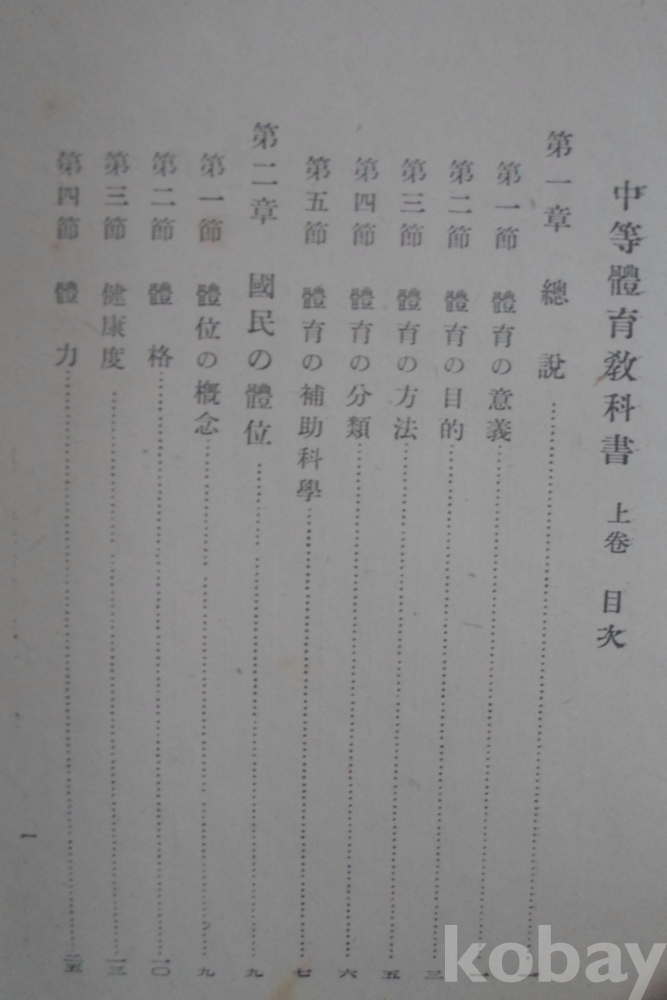 中等體育敎科書 上卷 目次
第一章 總說
第一節 體育の意義
第二節 體育の目的
第三節 體育の方法 五
第四節 體育の分類 六
第五節 體育の補助科學 七
第二章 國民の體位 九
第一節 體位の概念 九
第二節 體格 一〇
第三節 健康度 一三
第四節 體力
一
kobay